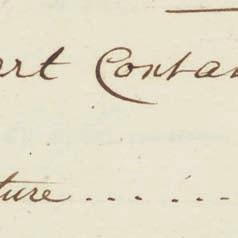 art Contan
ture .... . . ...